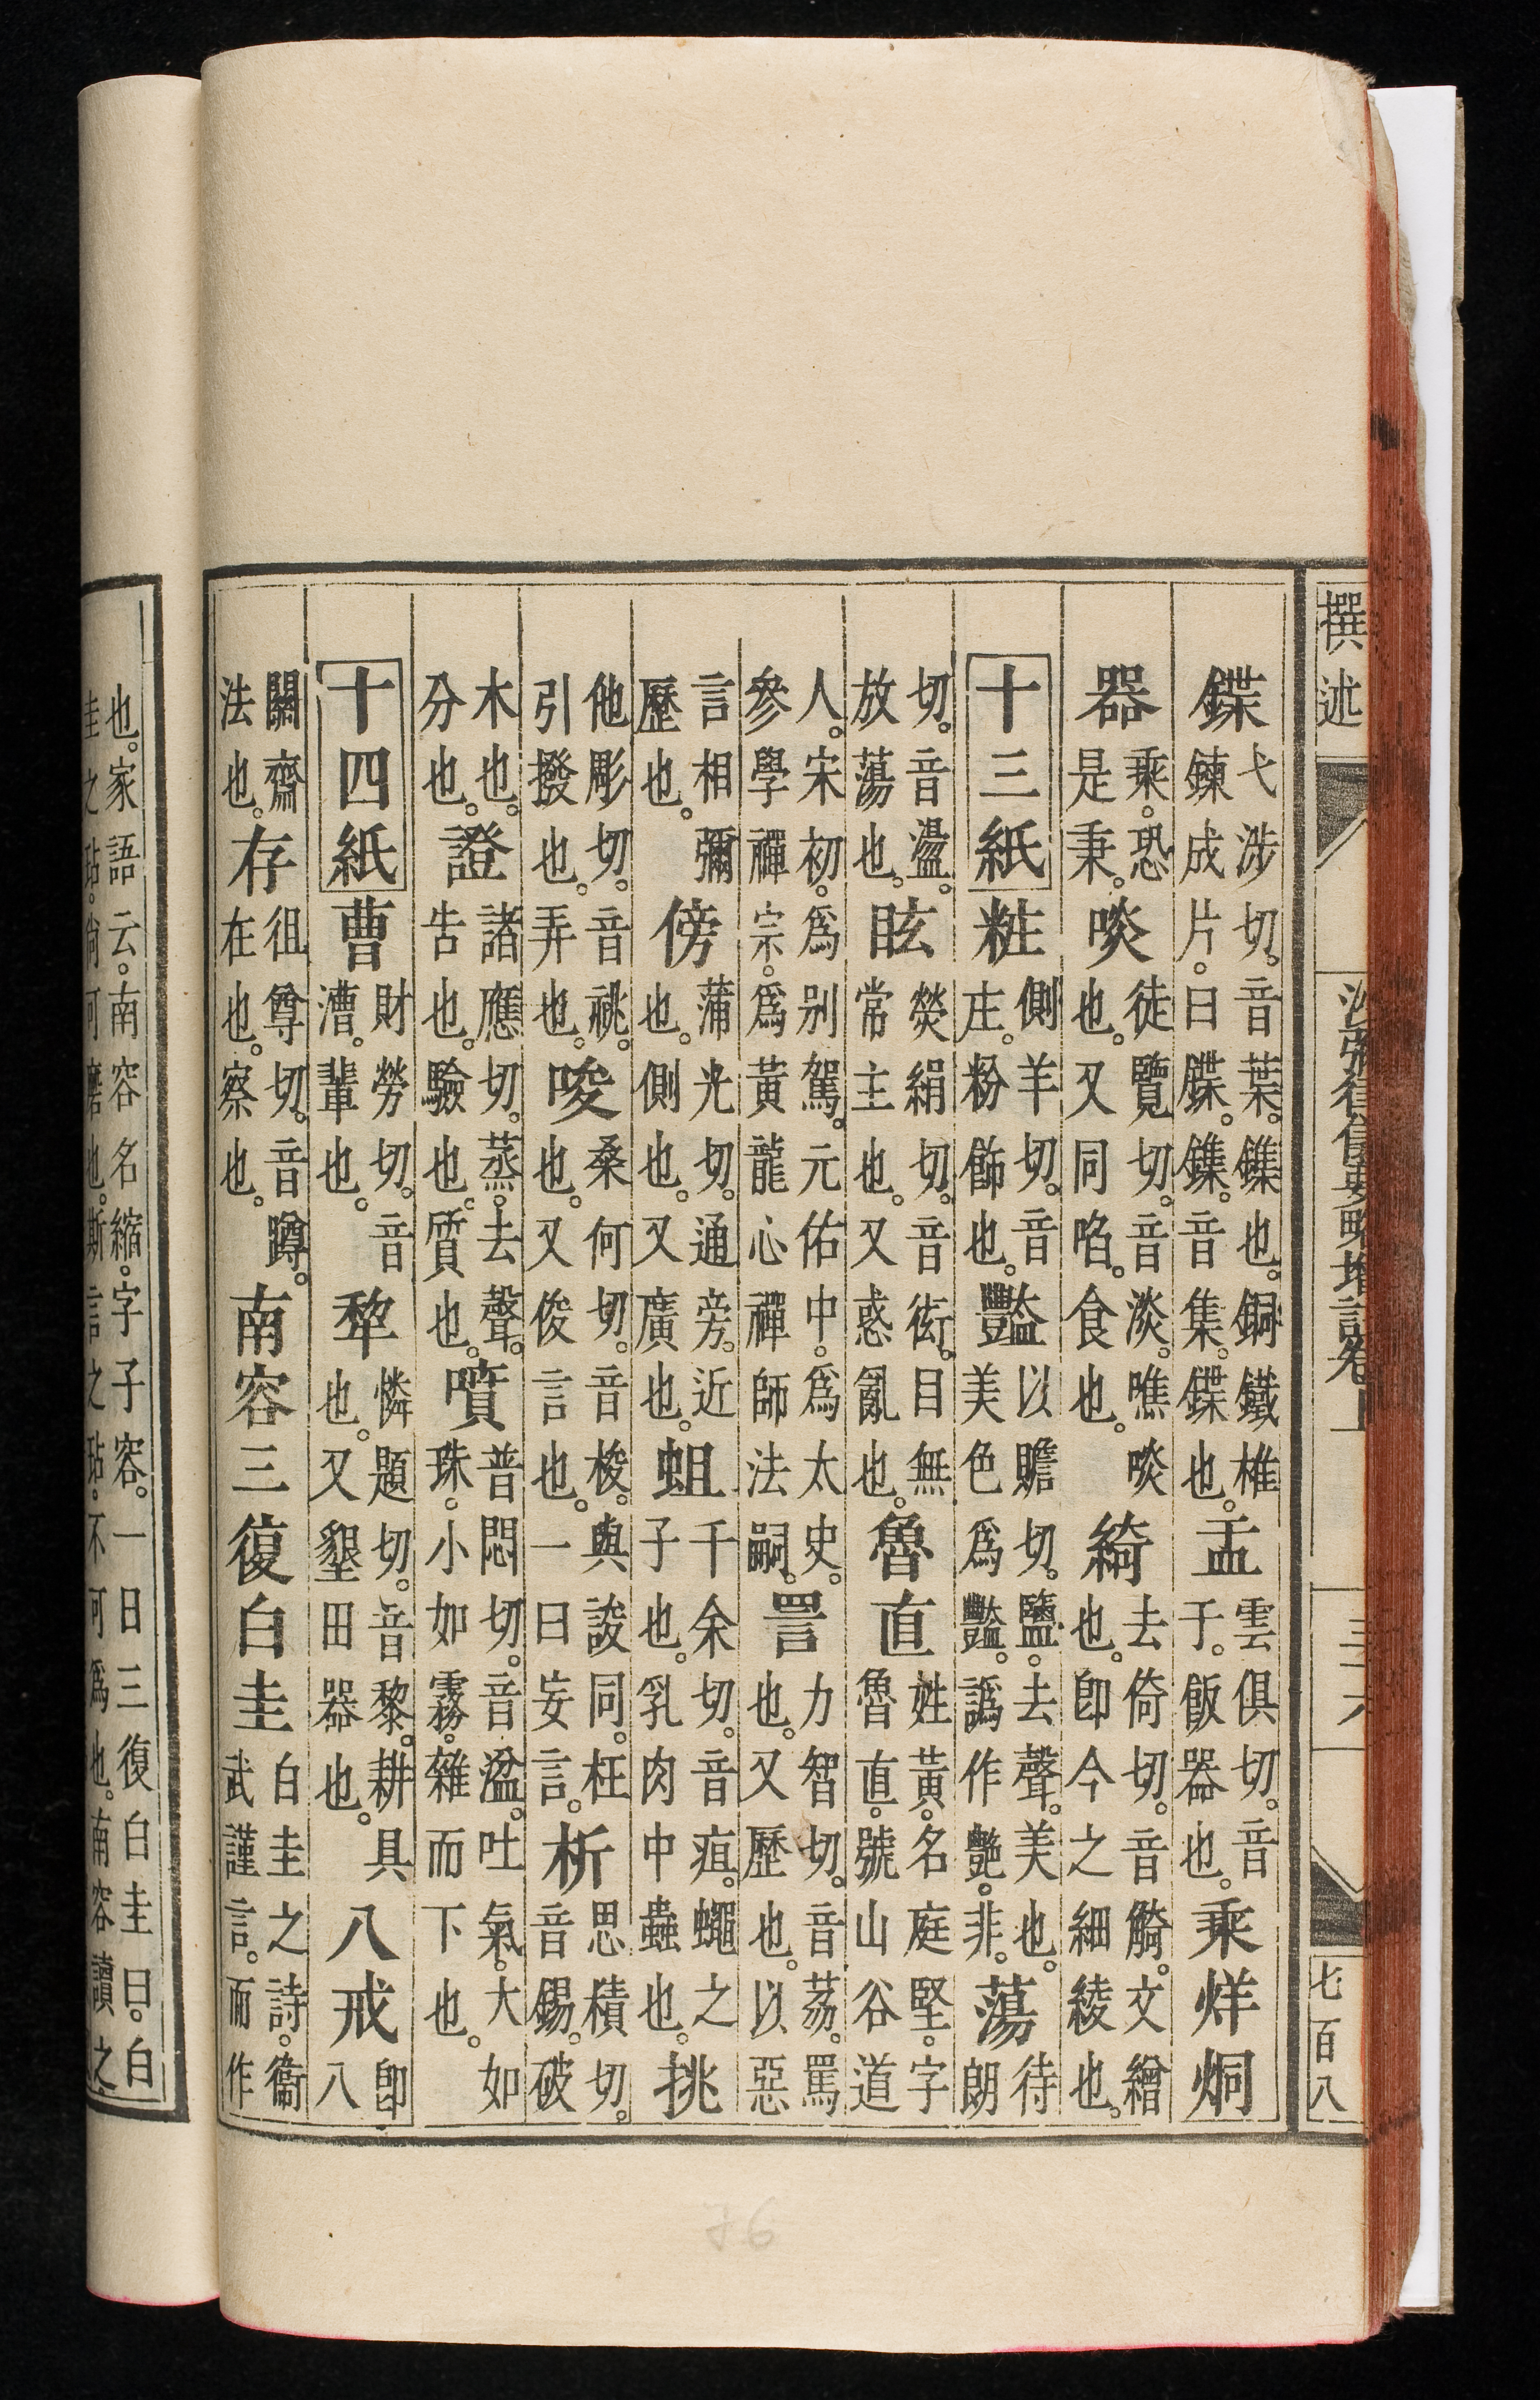 撰述
沙彌律儀要略增註卷上
三十六
七百八
鍱弋涉切。音葉。鏶也。銅鐵椎鍊成片。曰鍱。鏶。音集。鍱也。盂雲俱切。音于。飯器也。乘烊烔
器乘。恐是秉。啖徒覽切。音淡。噍啖也。又同啗。食也。綺去倚切。音觭。文繒也。卽今之細綾也。
十三紙粧側羊切。音庄。粉飾也。豔以贍切。鹽。去聲。美也。美色爲豔。譌作艷。非。蕩待朗
切。音盪。放蕩也。眩熒絹切。音衒。目無常主也。又惑亂也。魯直姓黃。名庭堅。字魯直。號山谷道
人。宋初。爲別駕。元佑中。爲太史。參學禪宗。爲黃龍心禪師法嗣。詈力智切。音荔。罵也。又歷也。以惡
言相彌歷也。傍蒲光切。通旁。近也。側也。又廣也。蛆千余切。音疽。蠅之子也。乳肉中蟲也。挑
他彫切。音祧。引撥也。弄也。唆桑何切。音梭。與誜同。枉也。又俊言也。一曰妄言。析思積切。音錫。破
木也。分也。證諸應切。蒸。去聲。告也。驗也。質也。噴普悶切。音湓。吐氣。大如珠。小如霧。雜而下也。
十四紙曹財勞切。音漕。輩也。犂憐題切。音黎。耕具也。又墾田器也。八戒卽八
關齋法也。存徂尊切。音蹲。在也。察也。南容三復白圭白圭之詩。衞武謹言。而作
也。家語云。南容名縮。字子容。一日三復白圭曰。白
圭之玷。尚可磨也。斯言之玷。不可爲也。南容讀之